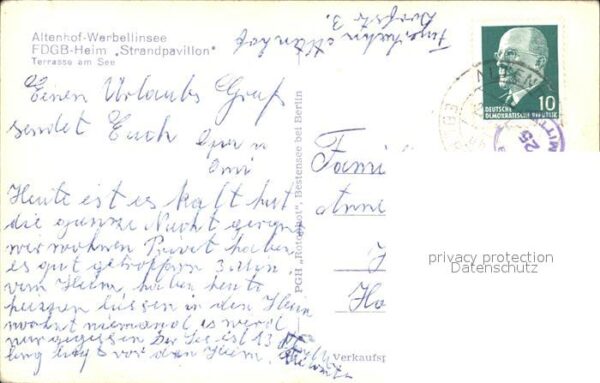 Altenhof-Werbellinsee
FDGB-Heim „Strandpavillon"
Terrasse am See
Dorfstr 3.
Einen Urlaubs Gruß
sendet Euch Opa u
Omi
Heute ist es kalt hat
die ganze Nacht geregn
wir wohnen Privat haben
es gut getroffen 3 Min.
vom Heim, haben heute
heizen lassen in den Heim
wohnt niemand es wird
nur gegessen Der See ist 13
lang liegt vor dem Heim.
PGH „Rotophot", Bestensee bei Berlin
DEUTSCHE
DEMOKRATISCHE REPUBLIK
10
25
Fami
Anne
J
Ha
privacy protection
Datenschutz
Verkaufsp